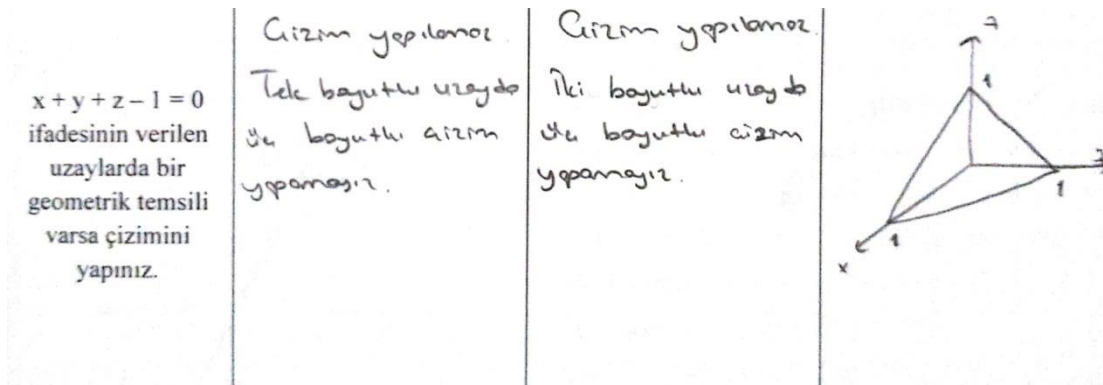 x + y + z – 1 = 0
ifadesinin verilen
uzaylarda bir
geometrik temsili
varsa çizimini
yapınız.
Çizim yapılamaz.
Tek boyutlu uzayda
üç boyutlu çizim
yapamayız.
Çizim yapılamaz.
İki boyutlu uzayda
üç boyutlu çizim
yapamayız.
z
1
1
1
x